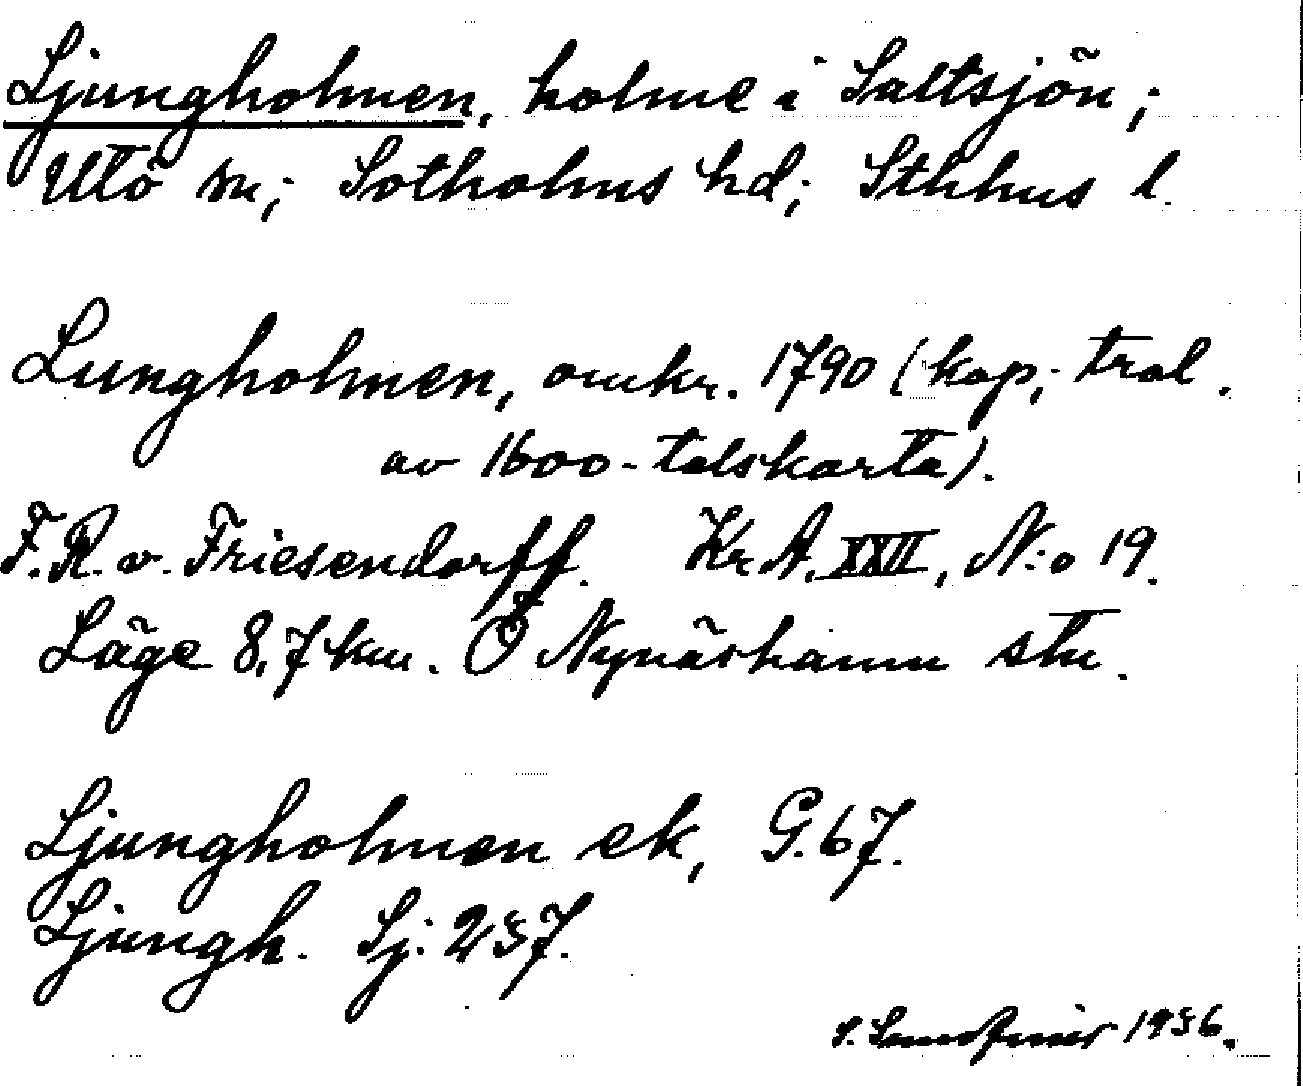 Ljungholmen, holme i Saltsjön;
Utö sn; Sotholms hd; Sthlms l.
Lungholmen, omkr. 1790 (kop; trol.
av 1600-talskarta).
F. R. v. Friesendorff. Kr A, XXII, N:o 19.
Läge 8,7 km. Ö Nynäshamn stn.
Ljungholmen ek, G. 67.
Ljungh. Sj: 237.
1936.